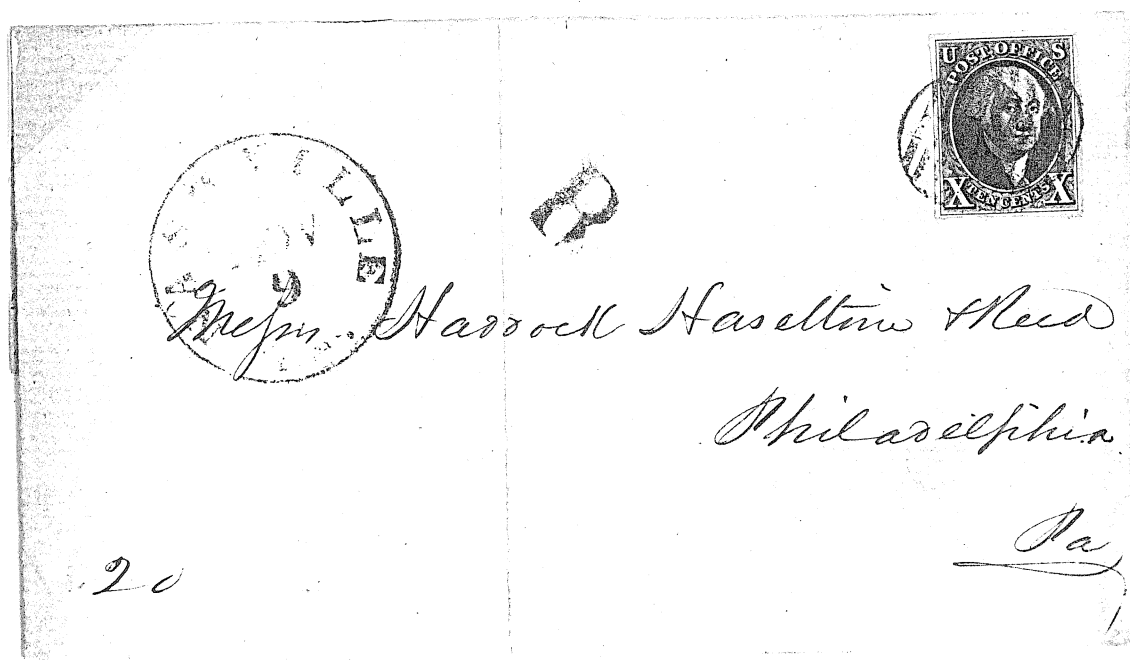 U S
POST OFFICE
X TEN CENTS X
NOV
5
Messrs. Haddock Haseltine & Reed
Philadelphia
Pa
20